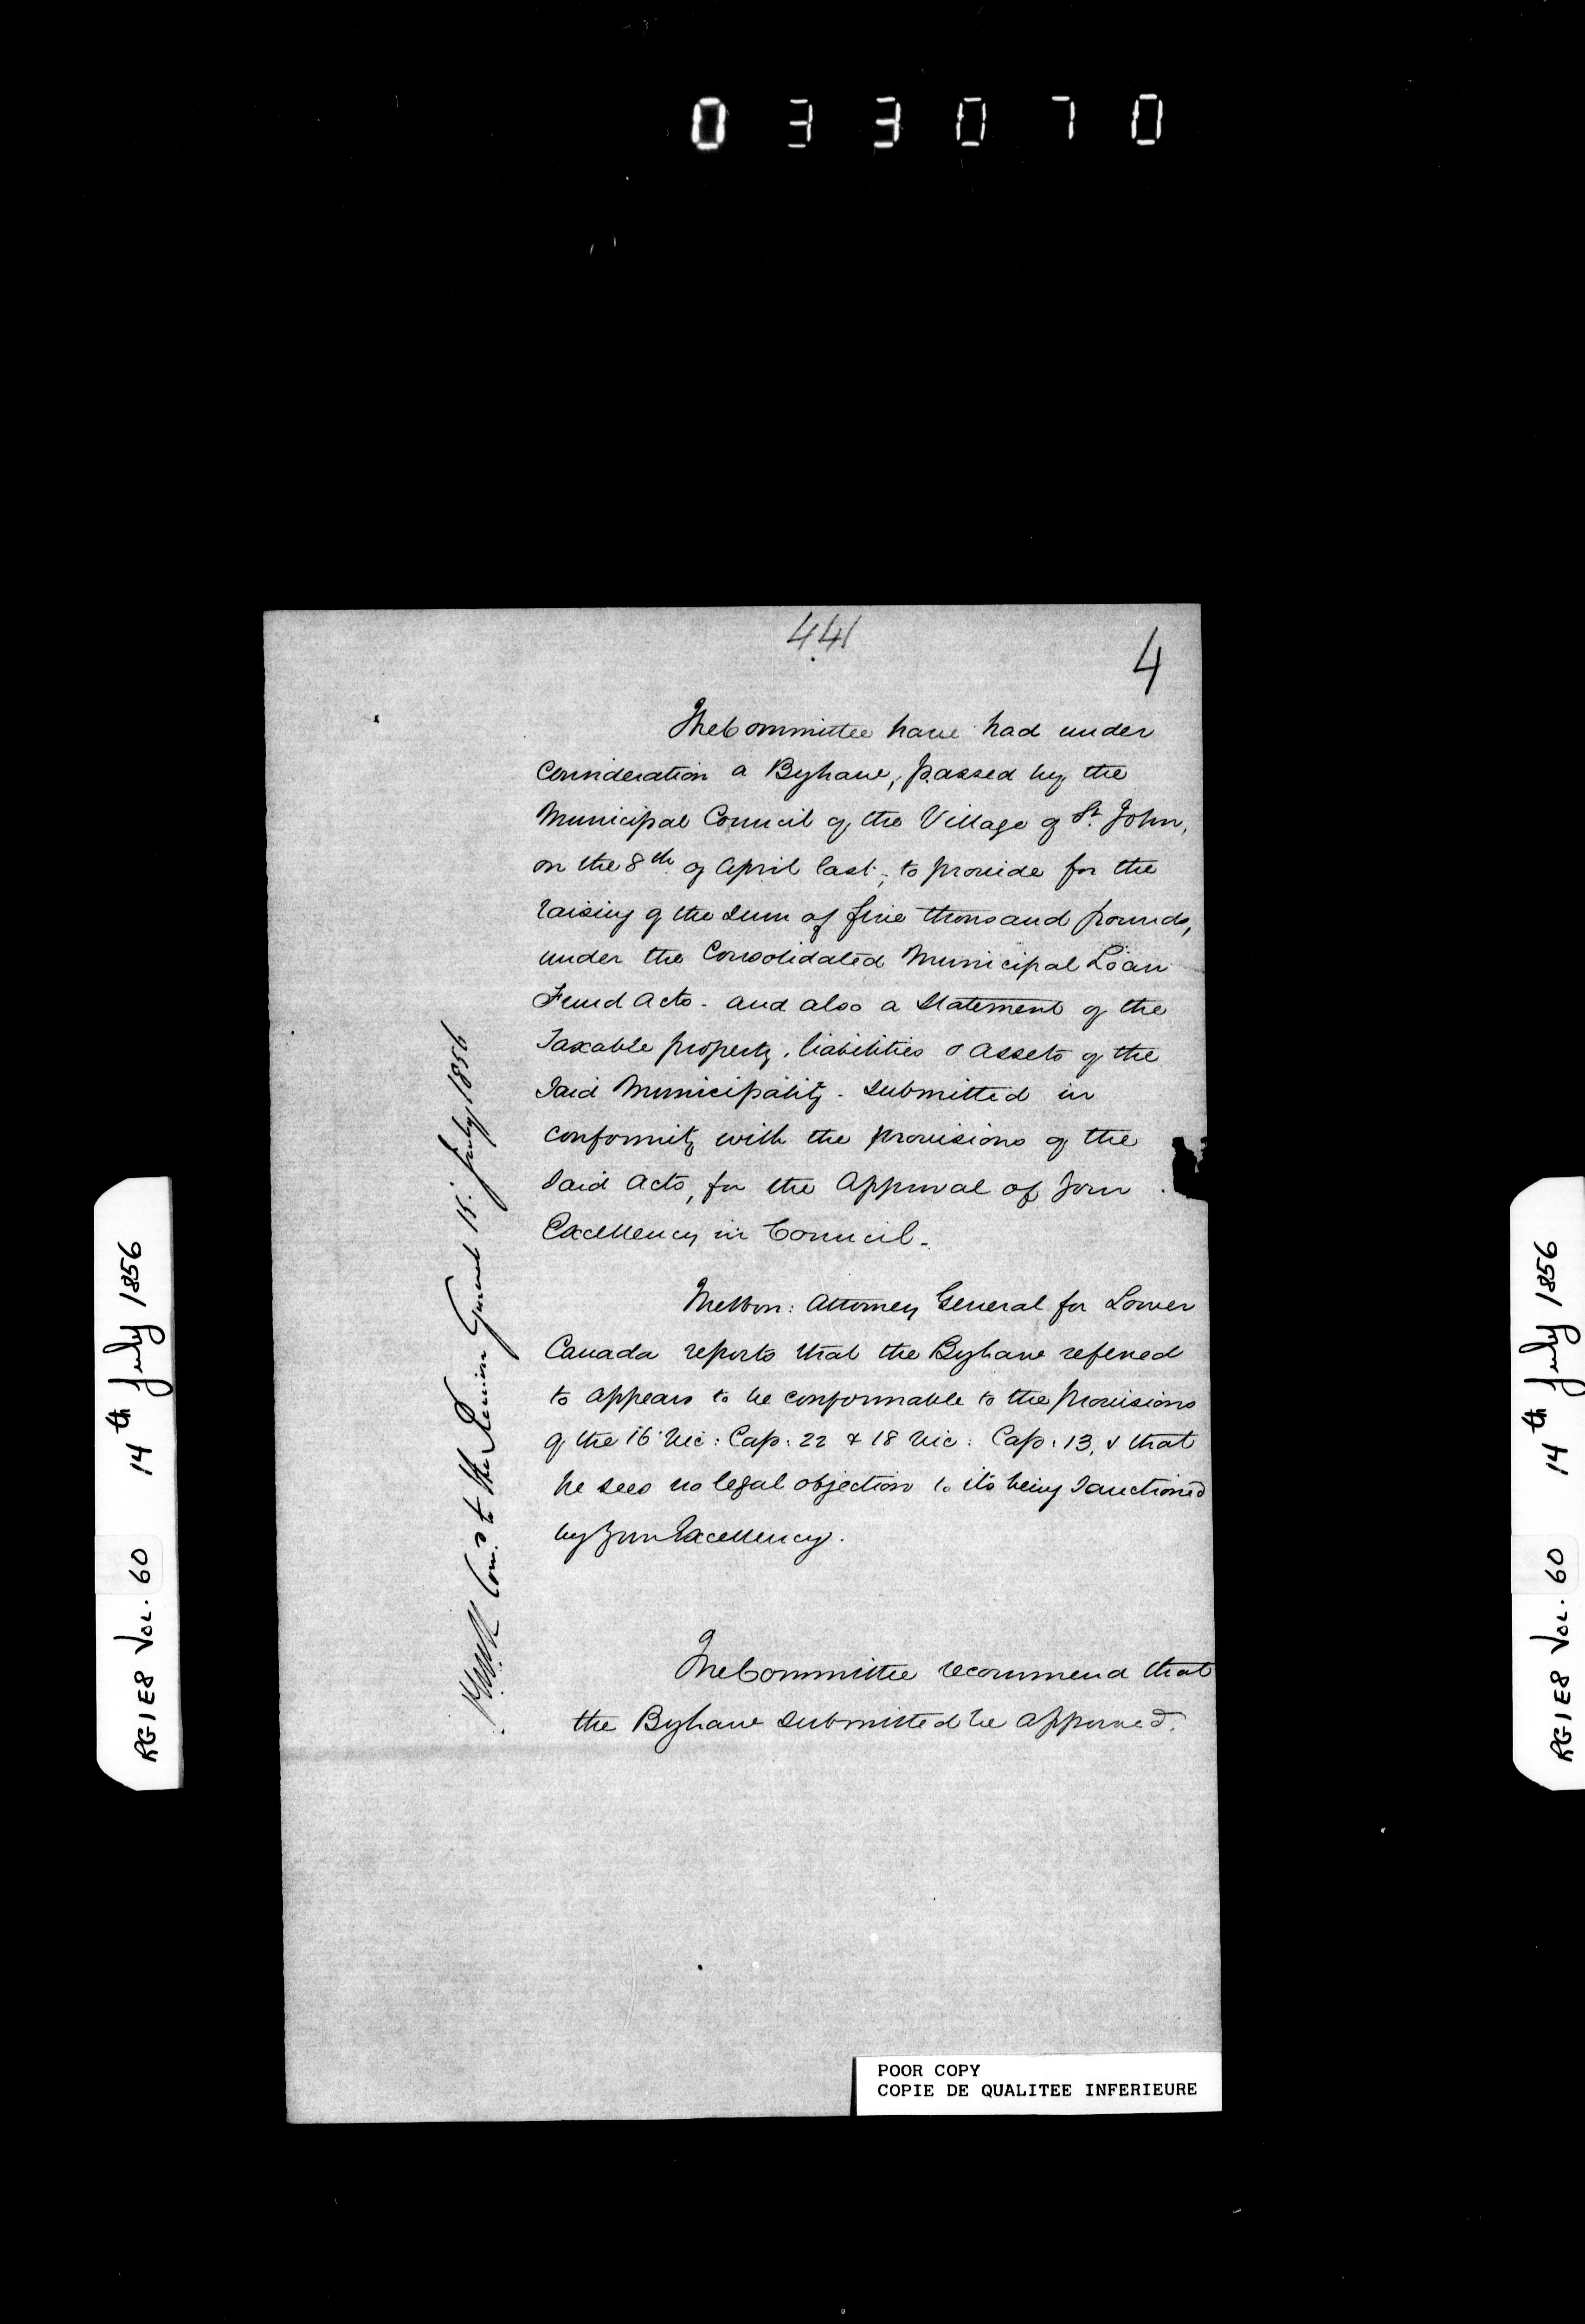 033070
441
4
The Committee have had under
Consideration a Bylaw, passed by the
Municipal Council of the Village of St. John,
on the 8th of April last, to provide for the
raising of the sum of five thousand pounds,
under the Consolidated Municipal Loan
Fund Acts - and also a Statement of the
Taxable property, liabilities & assets of the
Said Municipality - submitted in
conformity with the provisions of the
Said Acts, for the Approval of Your
Excellency in Council.
The Hon: Attorney General for Lower
Canada reports that the Bylaw referred
to appears to be conformable to the provisions
of the 16 Vic: Cap: 22 & 18 Vic: Cap: 13, & that
he sees no legal objection to its being Sanctioned
by Your Excellency.
The Committee recommend that
the Bylaw submitted be approved.
Com.d to the Receiver General 15: July 1856
RG1E8 VOL. 60 14th July 1856
RG1E8 VOL. 60 14th July 1856
POOR COPY
COPIE DE QUALITEE INFERIEURE